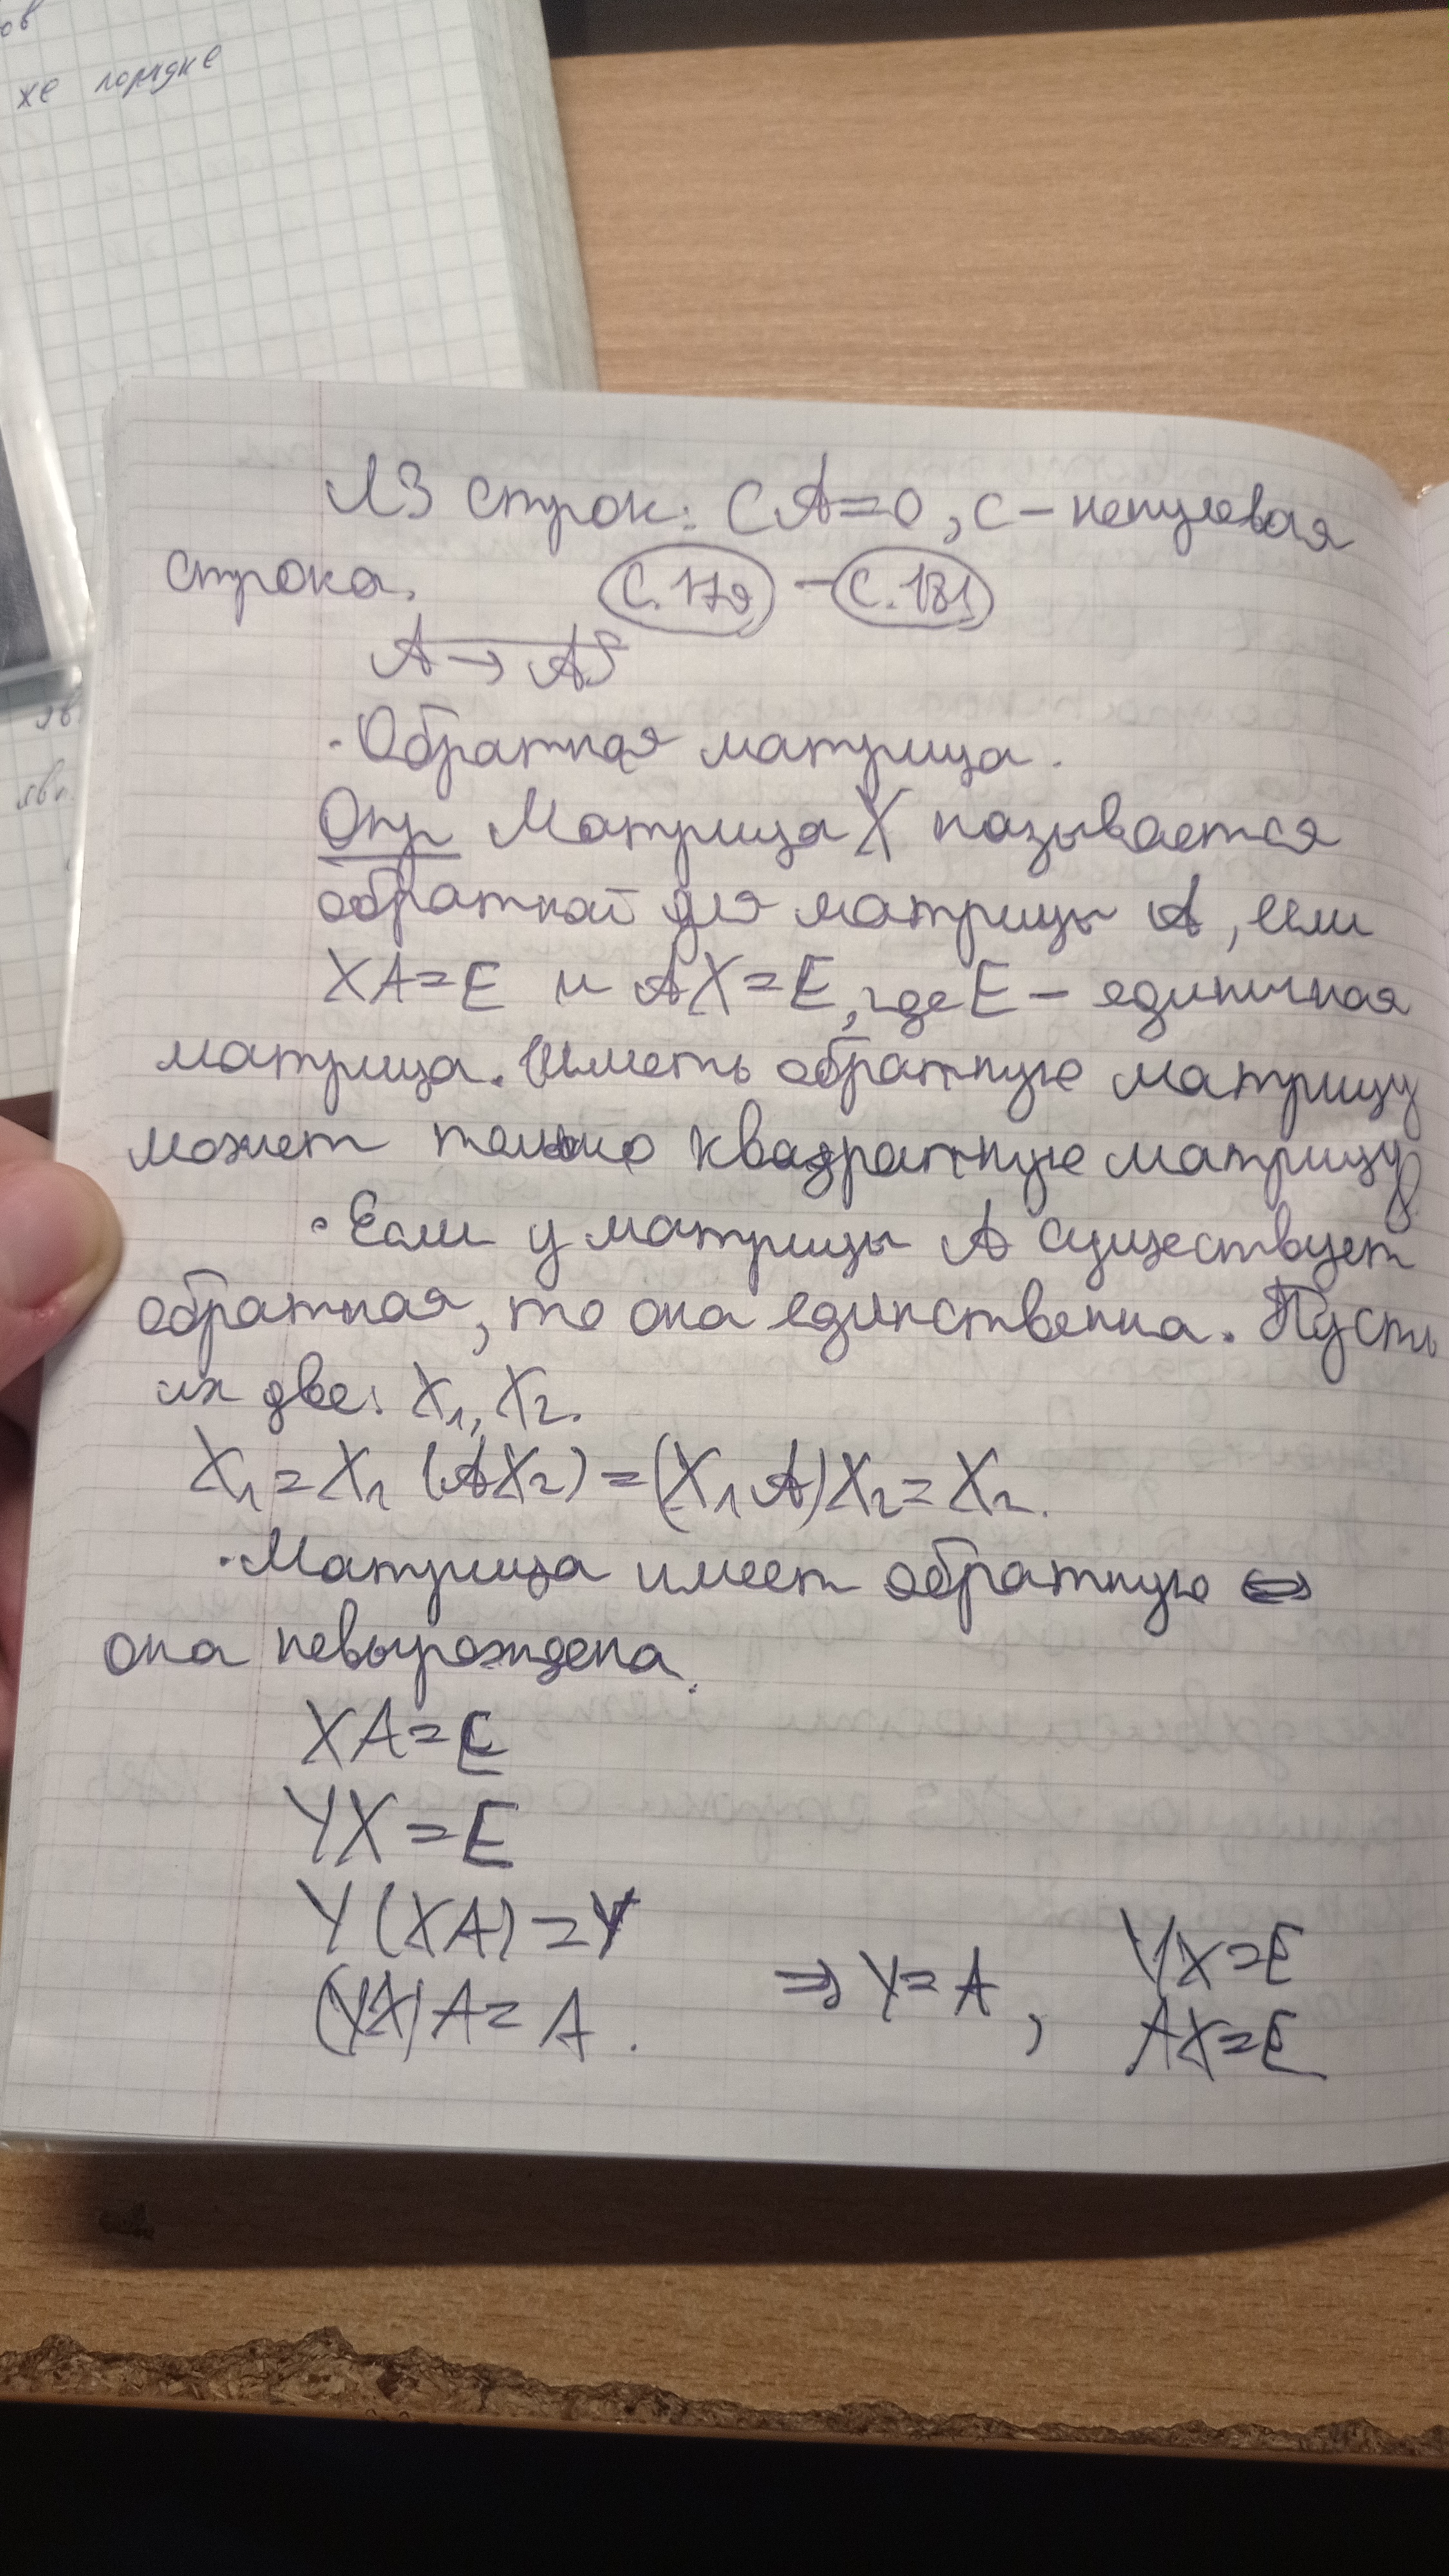 ов
же порядке
яв.
явл.
ЛЗ строк: cA=0, c – ненулевая
строка. с. 179 – с. 181
A → AS
· Обратная матрица.
Опр Матрица X называется
обратной для матрицы A, если
XA=E и AX=E, где E – единичная
матрица. Иметь обратную матрицу
может только квадратную матрицу
· Если у матрицы A существует
обратная, то она единственна. Пусть
их две: X₁, X₂.
X₁=X₁(AX₂)=(X₁A)X₂=X₂.
· Матрица имеет обратную ⇔
она невырождена.
XA=E
YX=E
Y(XA)=Y
(YX)A=A. ⇒ Y=A, YX=E
AX=E